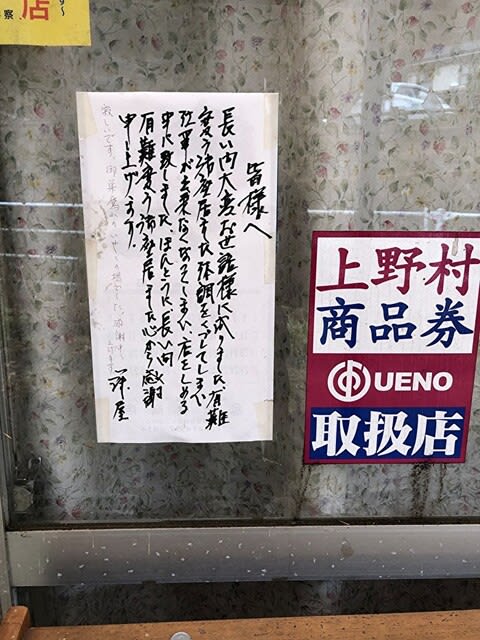 店
皆様へ
長い内大変お世話様になりました、有難
変う御座居ました体調をくづしてしまい
仕事が出来なくなってしまい、店をしめる
事に致しました、ほんとうに長い間
有難変う御座居ました心から感謝
申上げます。
澤屋
寂しいです。
上野村
商品券
UENO
取扱店